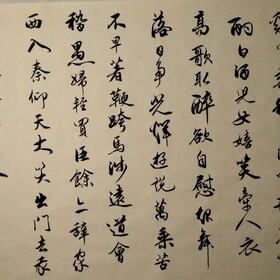 酌白酒兒女嬉笑牽人衣
高歌取醉欲自慰起舞
落日爭光輝游說萬乘苦
不早著鞭跨馬涉遠道會
稽愚婦輕買臣餘亦辭家
西入秦仰天大笑出門去我